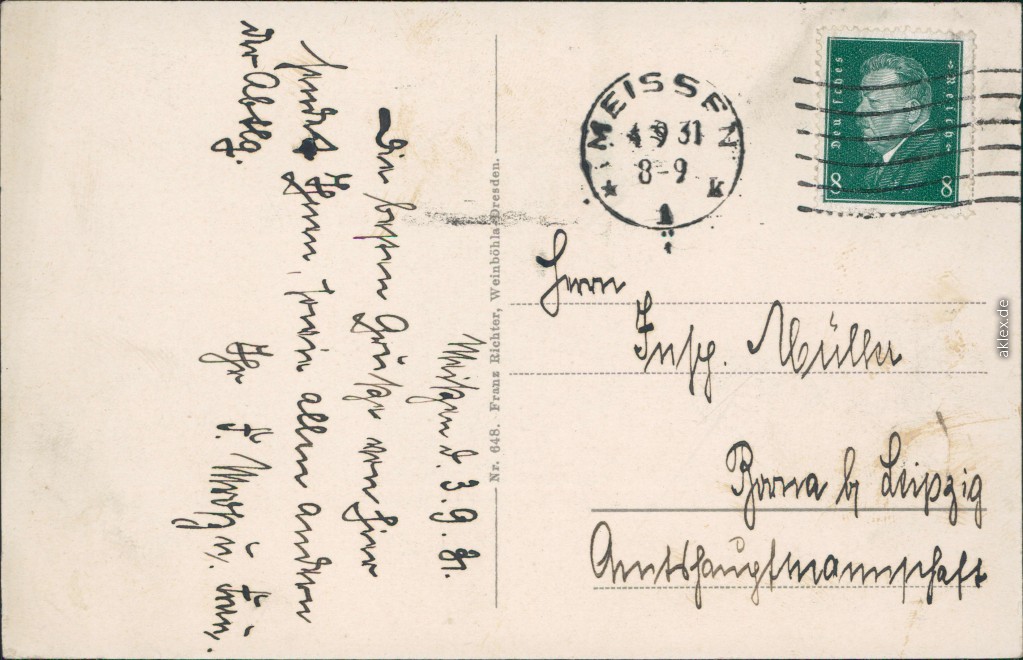 Meißen d. 3.9.31.
Die besten Grüße von hier
sendet Ihnen, sowie allen andern
Ihr F. u. Frau.
der Abtlg.
Nr. 648. Franz Richter, Weinböhla-Dresden.
MEISSEN
4 9 31
8-9
* 1 k
Deutsches Reich
8 8
Herrn
Insp. Müller
Borna b Leipzig
Amtshauptmannschaft
aklex.de